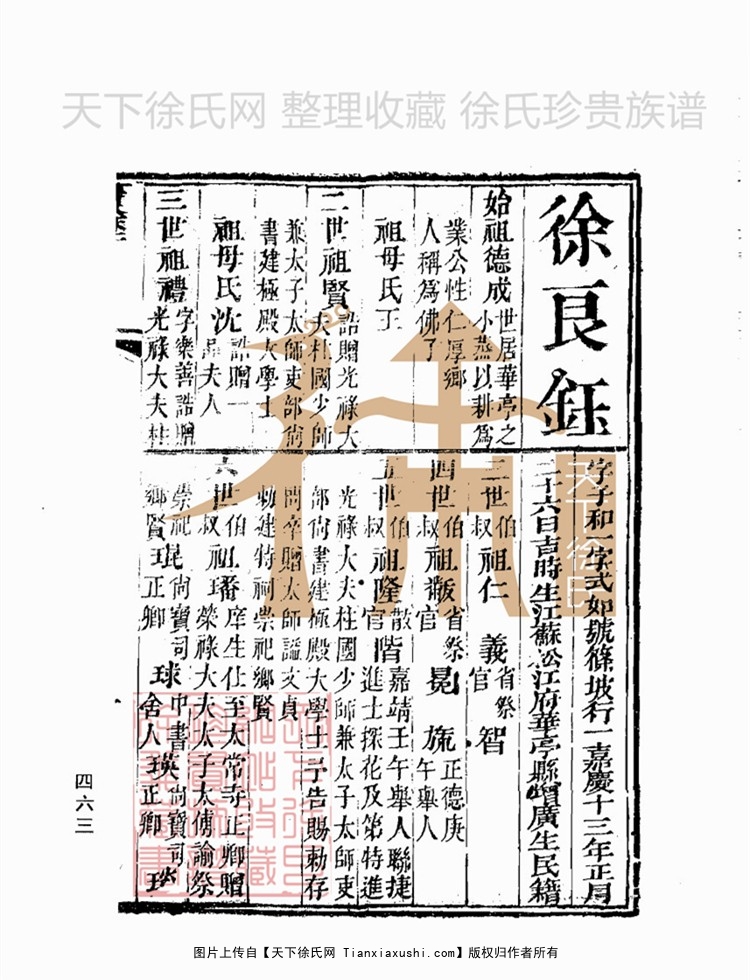 天下徐氏网 整理收藏 徐氏珍贵族谱
徐良鈺
字子和一字式如號篠坡行一嘉慶十三年正月
二十六日吉時生江蘇松江府華亭縣增廣生民籍
始祖德成 世居華亭之小蒸以耕為
業公性仁厚鄉
人稱為佛子
祖母氏王
二世祖賢 誥贈光祿大夫柱國少師
兼太子太師吏部尚
書建極殿大學士
祖母氏沈 誥贈一品夫人
三世祖禮 字樂善誥贈光祿大夫柱
三世叔伯祖仁 義 省祭官 智
四世叔伯祖黻 省祭官 冕 旒 正德庚午舉人
五世叔伯祖隆 散官 階 嘉靖壬午舉人聯捷進士探花及第特進
光祿大夫柱國少師兼太子太師吏
部尚書建極殿大學士予告賜勅存
問卒贈太師諡文貞
勅建特祠崇祀鄉賢
六世叔伯祖璠 庠生仕至太常寺正卿贈榮祿大夫太子太傅諭祭
崇祀鄉賢 琨 尚寶司正卿 球 中書舍人 瑛 尚寶司正卿
四六三
天下徐氏
图片上传自【天下徐氏网 Tianxiaxushi.com】版权归作者所有